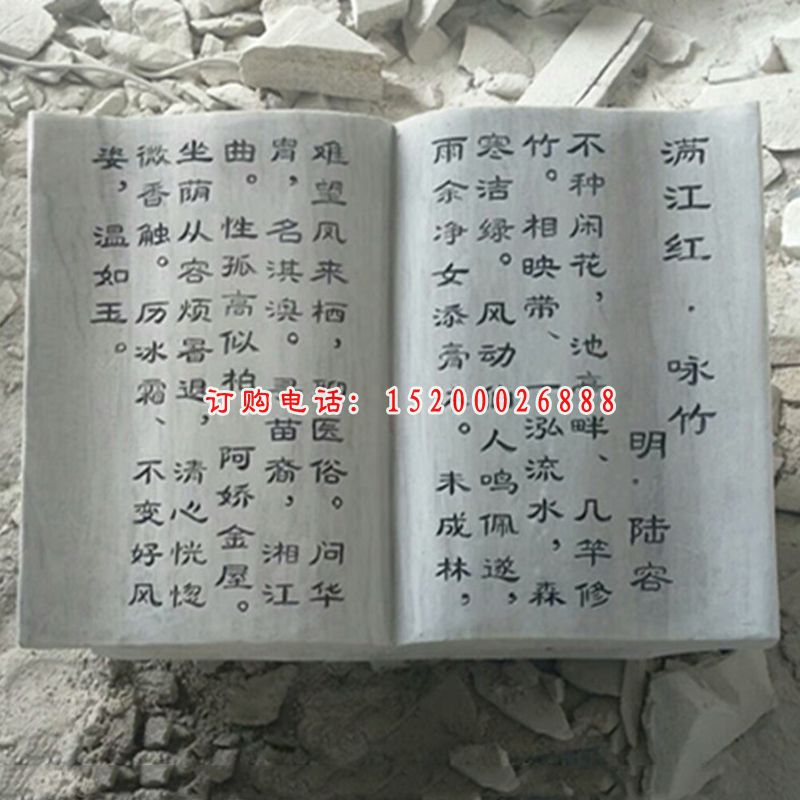 满江红·咏竹
明·陆容
不种闲花，池亭畔、几竿修
竹。相映带、一泓流水，森
寒洁绿。风动仙人鸣佩遂，
雨余净女添膏沐。未成林，
难望风来栖，聊医俗。问华
胄，名淇澳。寻苗裔，湘江
曲。性孤高似柏 阿娇金屋。
坐荫从容烦暑退，清心恍惚
微香触。历冰霜、不变好风
姿，温如玉。
订购电话：15200026888